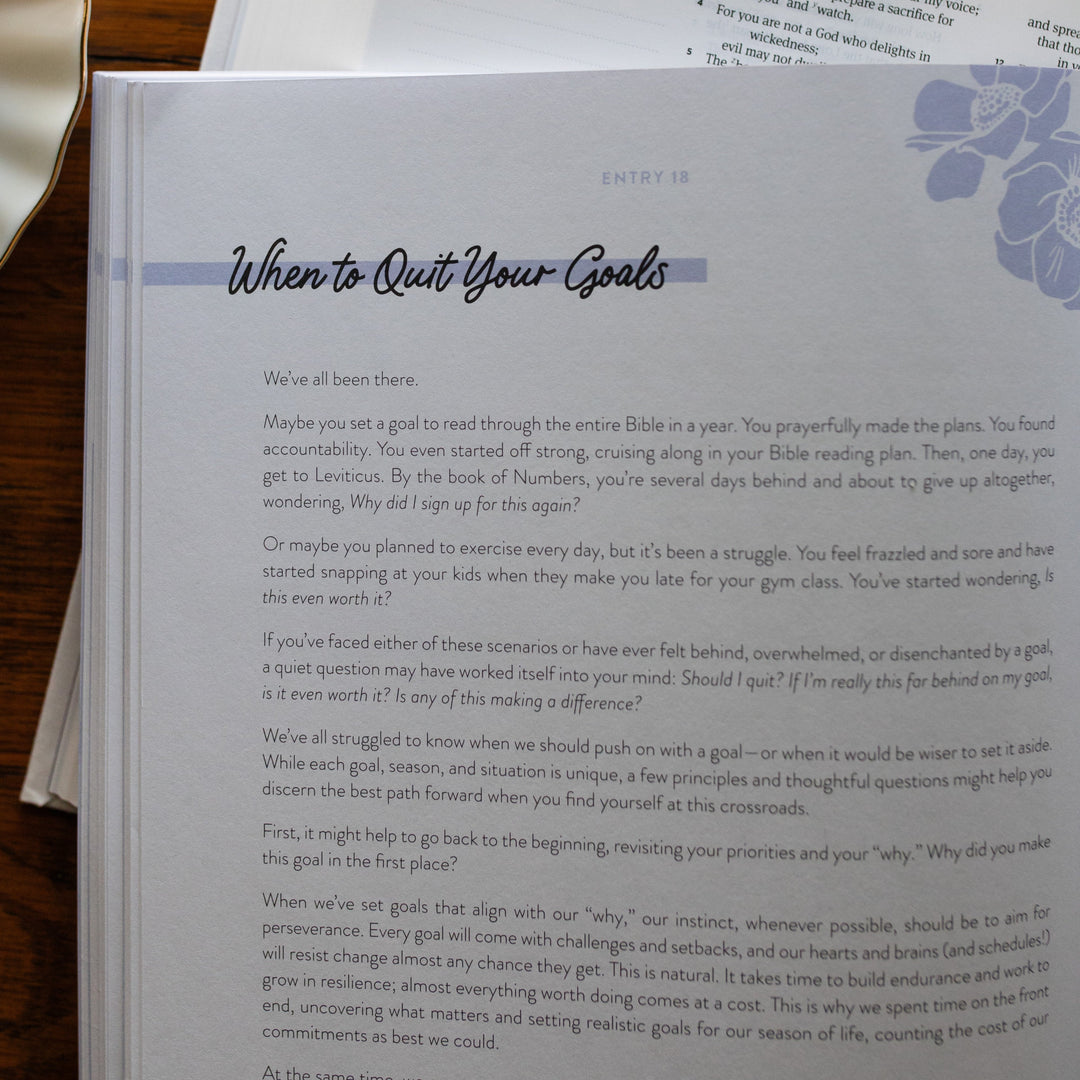 my voice;
prepare a sacrifice for
you and watch.
4 For you are not a God who delights in
wickedness;
evil may not
5 The
and
that
12
in
ENTRY 18
When to Quit Your Goals
We've all been there.
Maybe you set a goal to read through the entire Bible in a year. You prayerfully made the plans. You found
accountability. You even started off strong, cruising along in your Bible reading plan. Then, one day, you
get to Leviticus. By the book of Numbers, you're several days behind and about to give up altogether,
wondering, Why did I sign up for this again?
Or maybe you planned to exercise every day, but it's been a struggle. You feel frazzled and sore and have
started snapping at your kids when they make you late for your gym class. You've started wondering, Is
this even worth it?
If you've faced either of these scenarios or have ever felt behind, overwhelmed, or disenchanted by a goal,
a quiet question may have worked itself into your mind: Should I quit? If I'm really this far behind on my goal,
is it even worth it? Is any of this making a difference?
We've all struggled to know when we should push on with a goal—or when it would be wiser to set it aside.
While each goal, season, and situation is unique, a few principles and thoughtful questions might help you
discern the best path forward when you find yourself at this crossroads.
First, it might help to go back to the beginning, revisiting your priorities and your "why." Why did you make
this goal in the first place?
When we've set goals that align with our "why," our instinct, whenever possible, should be to aim for
perseverance. Every goal will come with challenges and setbacks, and our hearts and brains (and schedules!)
will resist change almost any chance they get. This is natural. It takes time to build endurance and work to
grow in resilience; almost everything worth doing comes at a cost. This is why we spent time on the front
end, uncovering what matters and setting realistic goals for our season of life, counting the cost of our
commitments as best we could.
At the same time,